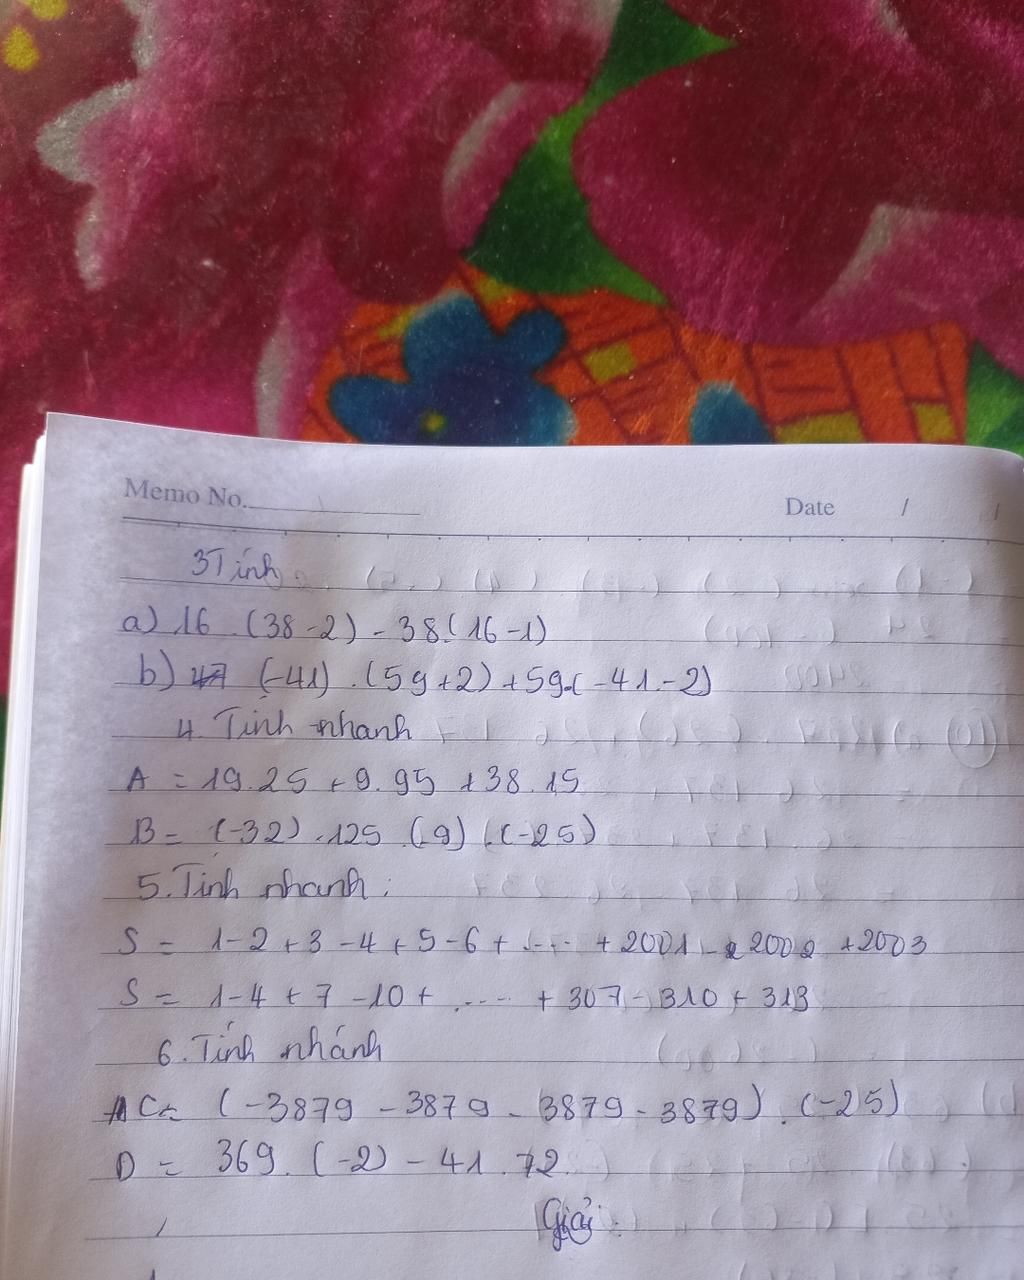 Memo No.
Date / /
3 Tính
a) 16 . (38 - 2) - 38. (16 - 1)
b) (-41) . (59 + 2) + 59.(-41 - 2)
4. Tính nhanh
A = 19.25 + 9.95 + 38.15
B = (-32) .125 .(-9) .(-25)
5. Tính nhanh :
S = 1 - 2 + 3 - 4 + 5 - 6 + .... + 2001 - 2002 + 2003
S = 1 - 4 + 7 - 10 + .... + 307 - 310 + 313
6. Tính nhánh
C = (-3879 - 3879 - 3879 - 3879) . (-25)
D = 369. (-2) - 41 . 72
Giải :